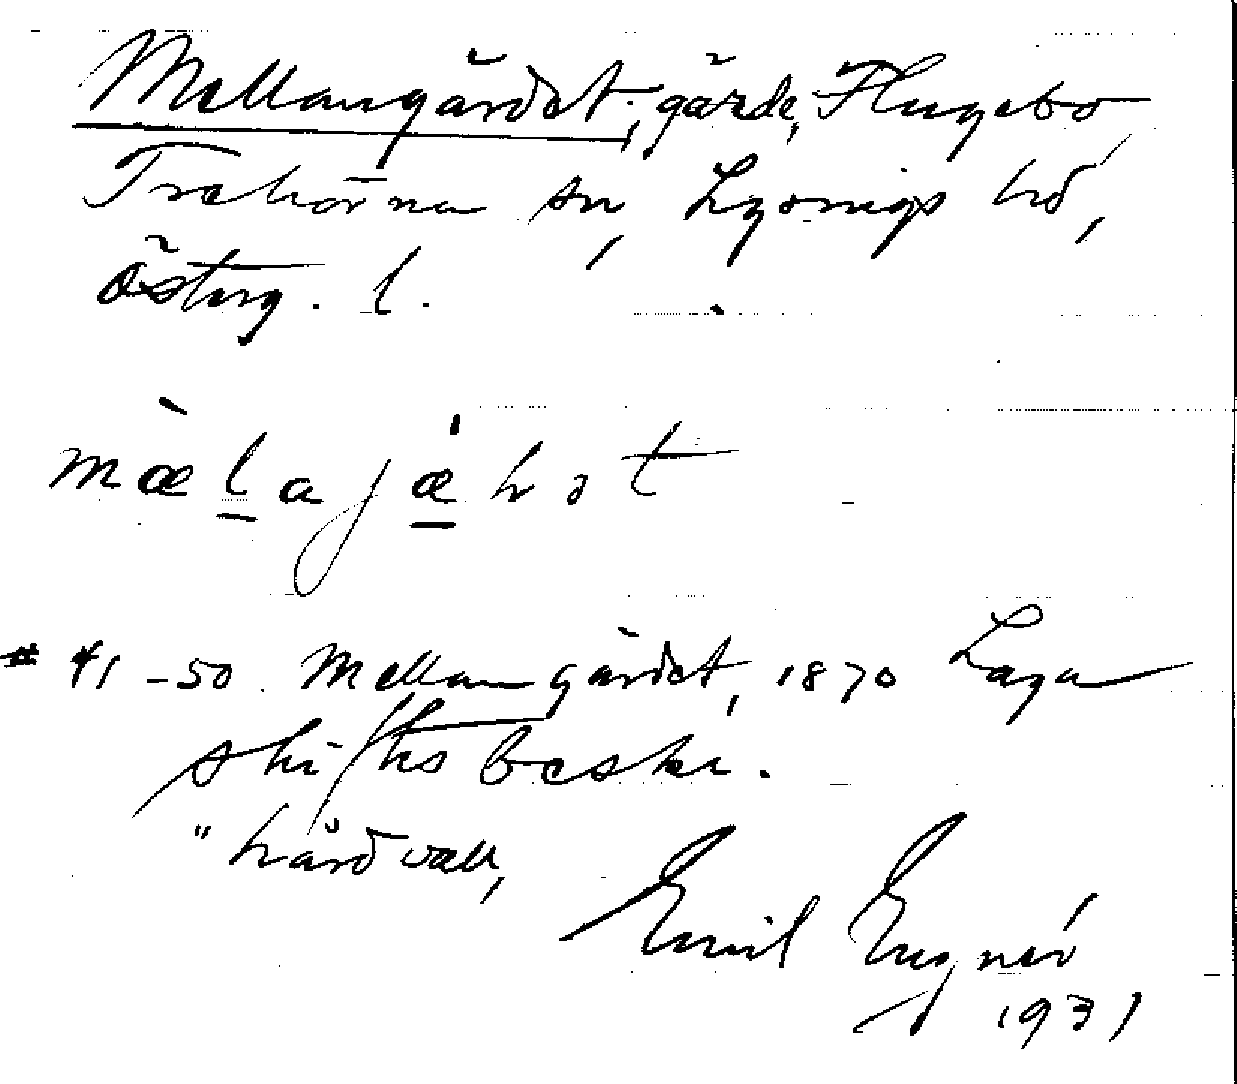 Mellangärdet, gärde, Flugebo
Trehörna sn, Lysings hd,
Österg. l.
mælajæhɔt
# 41–50. Mellangärdet, 1870 Laga
skiftsbeskr.
"hårdvall,
Emil Engnér
1931